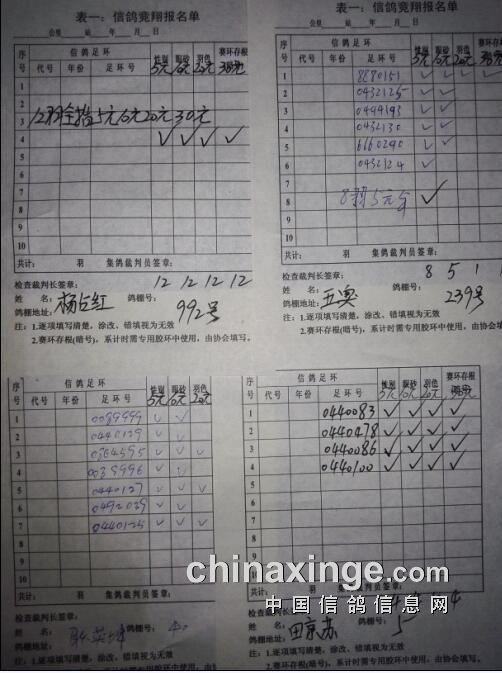 表一：信鸽竞翔报名单
公棚 站 年 月 日
序号 信鸽足环 性别 眼砂 羽色 赛环存根
代号 年份 足环号 5元 10元 20元 30元
1
2
3 12羽全指5元10元20元30元
4 ✓ ✓ ✓ ✓
5
6
7
8
9
10
共计： 羽 集鸽裁判员签章：
检查裁判长签章： 12 12 12 12
姓 名： 杨占红 鸽棚号：
鸽棚地址： 992号
注：1.逐项填写清楚，涂改、错填视为无效
2.赛环存根(暗号)，累计时需专用胶环中使用，由协会填写。
表一：信鸽竞翔报名单
公棚 站 年 月 日
序号 信鸽足环 性别 眼砂 羽色 赛环存根
代号 年份 足环号 5元 10元 20元
1 8880151 ✓ ✓ ✓ ✓
2 0432125 ✓ ✓
3 0499193 ✓ ✓
4 0432130 ✓ ✓
5 6660290 ✓ ✓
6 0432124 ✓
7
8 8羽5元 ✓
9
10
共计： 羽 集鸽裁判员签章：
检查裁判长签章： 8 5 1 1
姓 名： 鸽棚号：
鸽棚地址： 239号
注：1.逐项填写清楚，涂改、错填视为无效
2.赛环存根(暗号)，累计时需专用胶环中使用，由协会
序号 信鸽足环 性别 眼砂 羽色
代号 年份 足环号 5元 10元 20元
1 0099999 ✓ ✓
2 0440129 ✓ ✓
3 0864595 ✓ ✓ ✓
4 0039996 ✓ ✓
5 0440127 ✓ ✓ ✓
6 0492039 ✓ ✓
7 0440125 ✓ ✓ ✓
8
9
10
共计： 羽 集鸽裁判员签章：
检查裁判长签章：
姓 名： 鸽棚号： 40
鸽棚地址：
注：1.逐项填写清楚，涂改、错填视为无效
2.赛环存根(暗号)，累计时需专用胶环中使用，由
序号 信鸽足环 性别 眼砂 羽色 赛环存根
代号 年份 足环号 5元 10元 20元
1 0440083 ✓ ✓ ✓ ✓
2 0440478 ✓ ✓ ✓ ✓
3 0440086 ✓ ✓ ✓ ✓
4 0440100 ✓ ✓ ✓ ✓
5
6
7
8
9
10
共计： 羽 集鸽裁判员签章：
检查裁判长签章： 4
姓 名： 田京苏 鸽棚号： 5
鸽棚地址：
注：1.逐项填写清楚，涂改、错填视为无效
2.赛环存根(暗号)，累计时需专用胶环中使用，由协会
chinaxinge.com
中国信鸽信息网